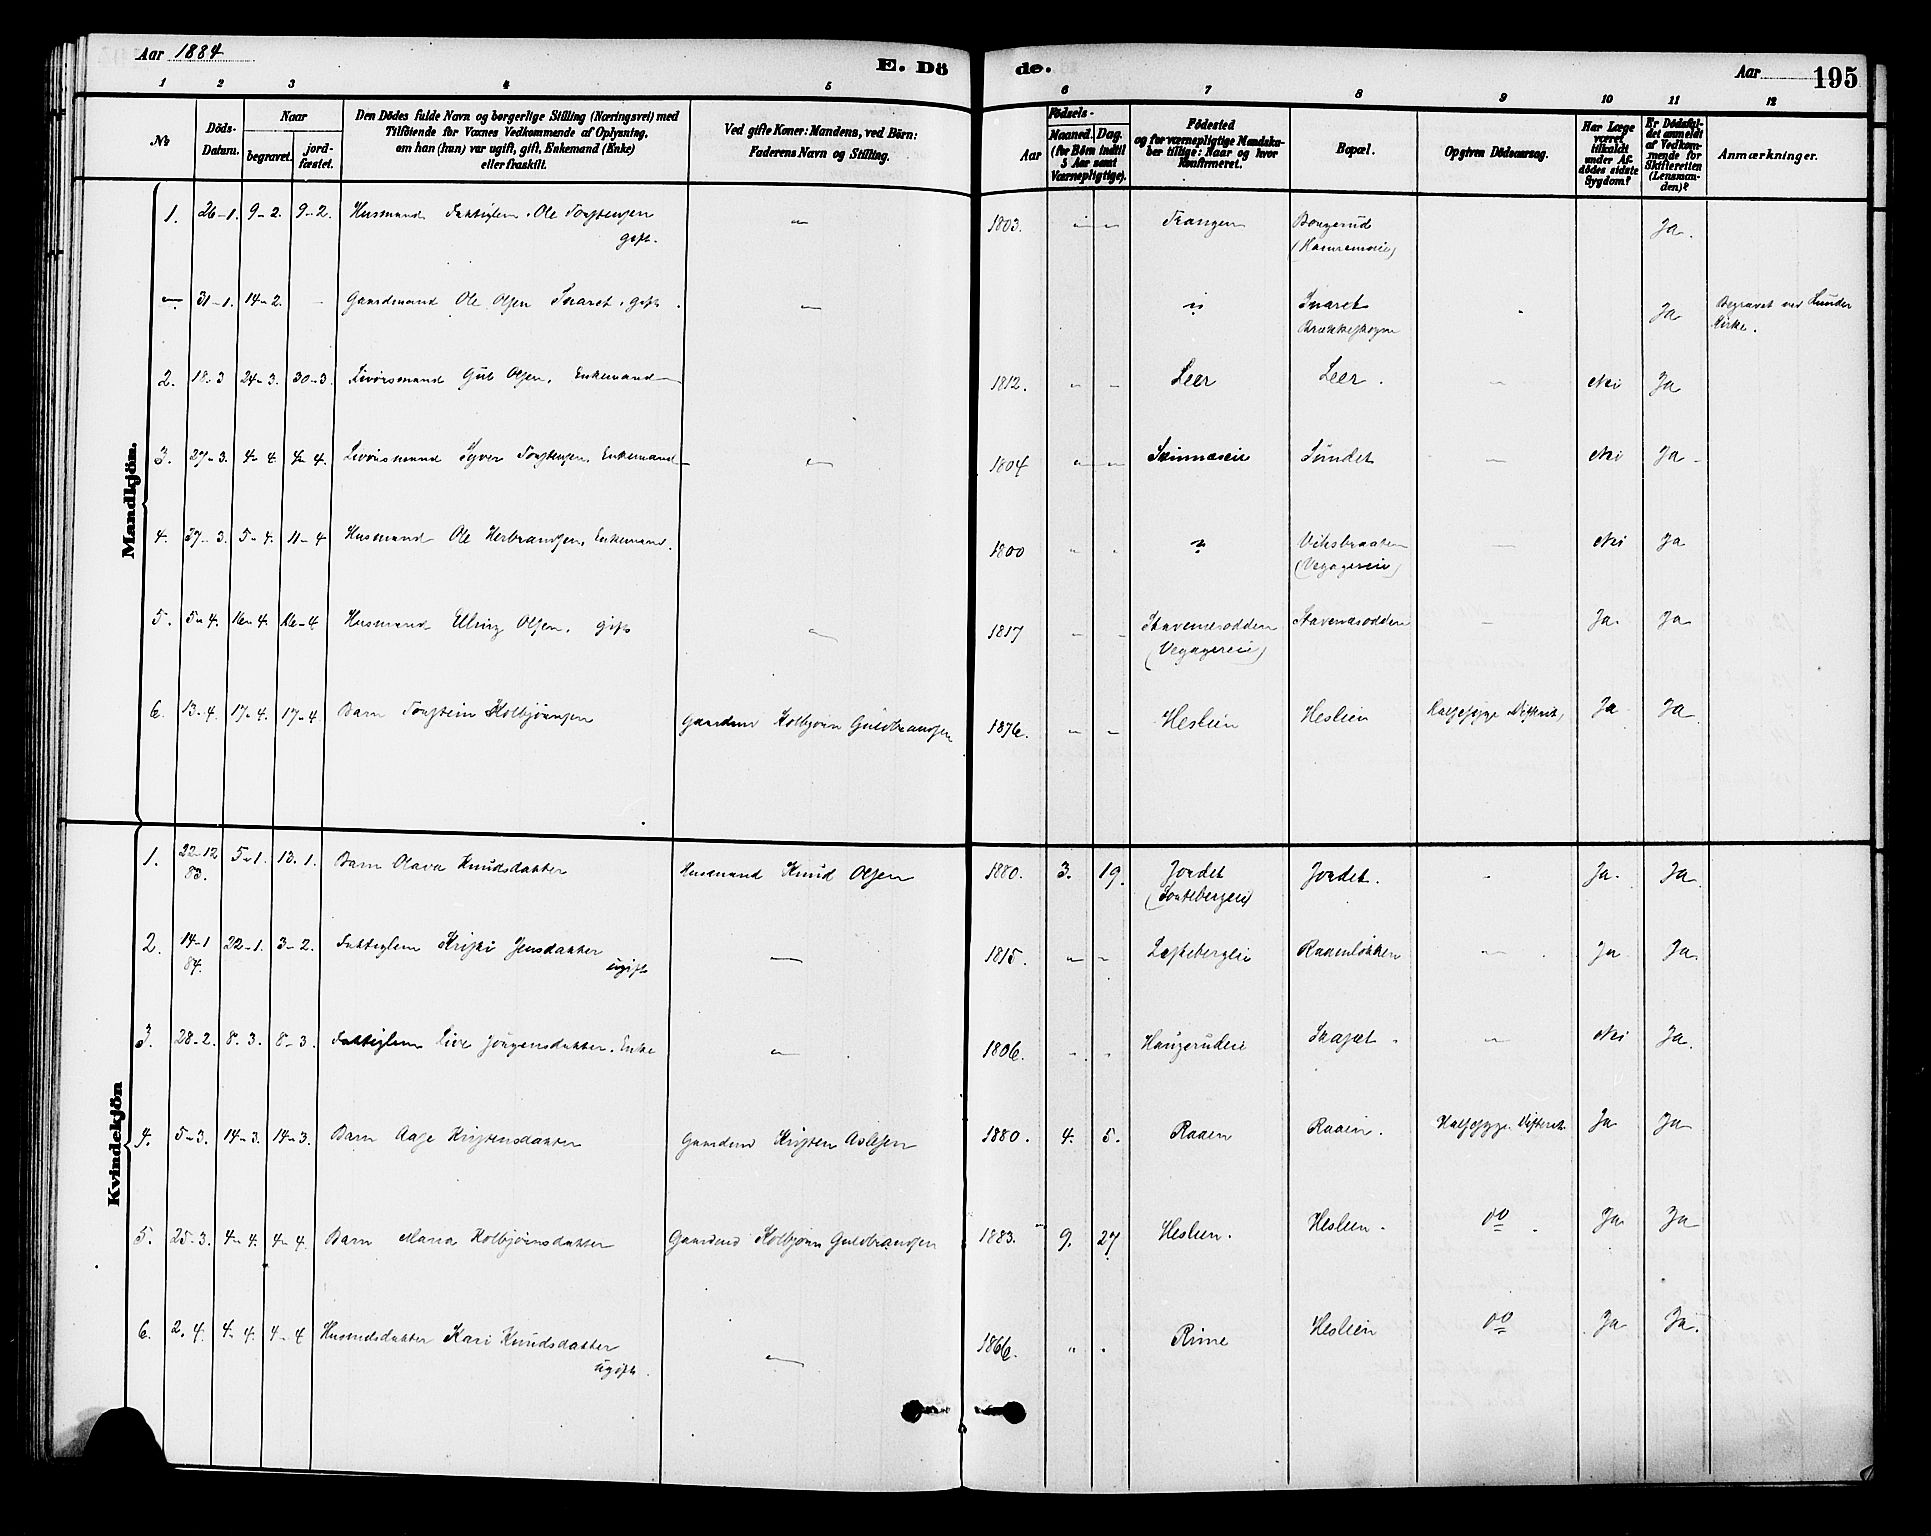 Aar 1884
E. Döde.
Aar 195
1 2 3 4 5 6 7 8 9 10 11 12
No
Döds-Datum.
Naar
begravet.
jordfæstet.
Den Dödes fulde Navn og borgerlige Stilling (Næringsvei) med
Tilföiende for Voxnes Vedkommende af Oplysning,
om han (hun) var ugift, gift, Enkemand (Enke)
eller fraskilt.
Ved gifte Koner: Mandens, ved Börn:
Faderens Navn og Stilling.
Födsels-
Aar
Maaned. Dag.
(for Börn indtil
5 Aar samt
Værnepligtige).
Födested
og for værnepligtige Mandska-
ber tillige: Naar og hvor
Konfirmeret.
Bopæl.
Opgiven Dödsaarsag.
Har Læge
været
tilkaldt
under Af-
dödes sidste
Sygdom?
Er Dödsfal-
det anmeldt
af Vedkom-
mende for
Skifteretten
(Lensman-
den)?
Anmærkninger.
Mandkjön.
1. 26-1. 9-2. 9-2. Husmand Fattiglem. Ole Torstensen gift. 1803. Trangen Bongerud Ja.
31-1. 14-2. - Gaardmand Ole Olsen Snaret. gift. Snaret Brækkeskogen Ja Begravet ved Lunder Kirke.
2. 18-3 24-3. 30-3. Livörsmand Gulb Olsen. Enkemand 1812. Leer Leer. Nei Ja
3. 27-3. 4-4. 4-4. Livörsmand Syver Torstensen. Enkemand 1804 Sundet Nei Ja
4. 27-3. 5-4. 11-4 Husmand Ole Herbrandsen, Enkemand. 1800 ? Viksbraaten (Vegagereie) Nei Ja
5. 5-4. 16-4. 16-4 Husmand Elling Olsen. gift 1817 Stavenesodden (Vegagereie) Stavenesodden Ja. Ja
6. 13-4. 17-4. 17-4. Barn Torstein Kolbjörnsen Gaardm Kolbjörn Guldbrandsen 1876. Heslien Heslien Halssyge Difterit Ja Ja
Kvindekjön
1. 22-12 83. 5-1. 13. 1. Barn Olava Knudsdatter Husmand Knud Olsen 1880. 3. 19. Jordet (Sortebergeie) Jordet. Ja. Ja.
2. 14-1 84. 22-1. 3-2. Fattiglem Kristi Jensdatter ugift 1815. Raaenlökken Ja Ja.
3. 28-2. 8-3. 8-3. Fattiglem Live Jörgensdatter. Enke 1806. Haugerudeie Nei Ja.
4. 5-3. 14-3. 14-3. Barn Aase Kristensdatter Gaardm Kristen Aslesen 1880. 4. 5. Raaen Raaen. Halssyge. Difterit Ja Ja
5. 25-3. 4-4. 4-4. Barn Maria Kolbjörnsdatter Gaardmd Kolbjörn Guldbrandsen 1883. 9. 27 Heslien. Heslien. do Ja Ja
6. 2. 4. 4-4. 4-4 Husmdsdatter Kari Knudsdatter ugift. 1866. Rime Heslien do Ja Ja.